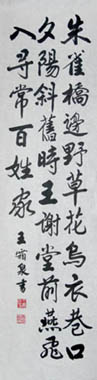 朱雀橋邊野草花烏衣巷口
夕陽斜舊時王謝堂前燕飛
入尋常百姓家
王霜泉書